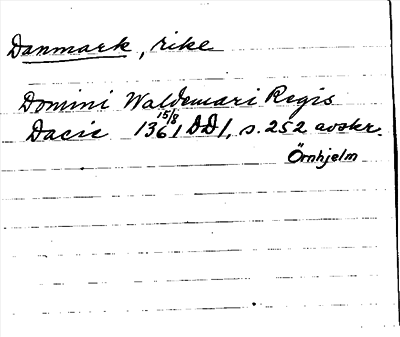 Danmark, rike
Domini Waldemari Regis
Dacie 13 15/8 61 DD1, s. 252 avskr.
Örnhjelm